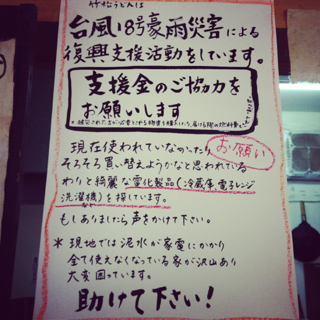 竹松うどんは
台風18号豪雨災害による
復興支援活動をしています。
支援金のご協力を
お願いします
お願い
現在使われていなかったり
そろそろ買い替えようかなと思われている
わりと綺麗な電化製品(冷蔵庫、電子レンジ
洗濯機)を探しています。
もしありましたら声をかけて下さい。
*現地では泥水が家電にかかり
全て使えなくなっている家が沢山あり
大変困っています。
助けて下さい!